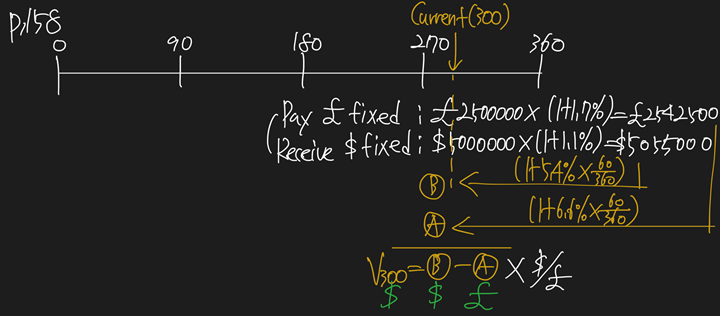 p.158
Current(300)
0 90 180 270 360
Pay £ fixed : £2500000×(1+1.7%)=£2542500
Receive $ fixed : $5000000×(1+1.1%)=$5055000
Ⓑ (1+5.4%×60/360)
Ⓐ (1+6.6%×60/360)
V300=Ⓑ-Ⓐ×$/£
$ $ £